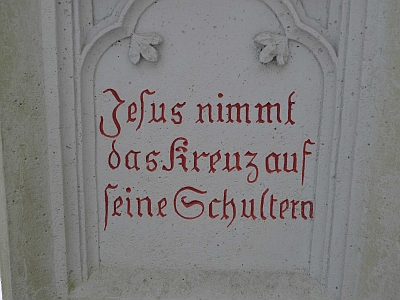 Jeſus nimmt
das Kreuz auf
ſeine Schultern